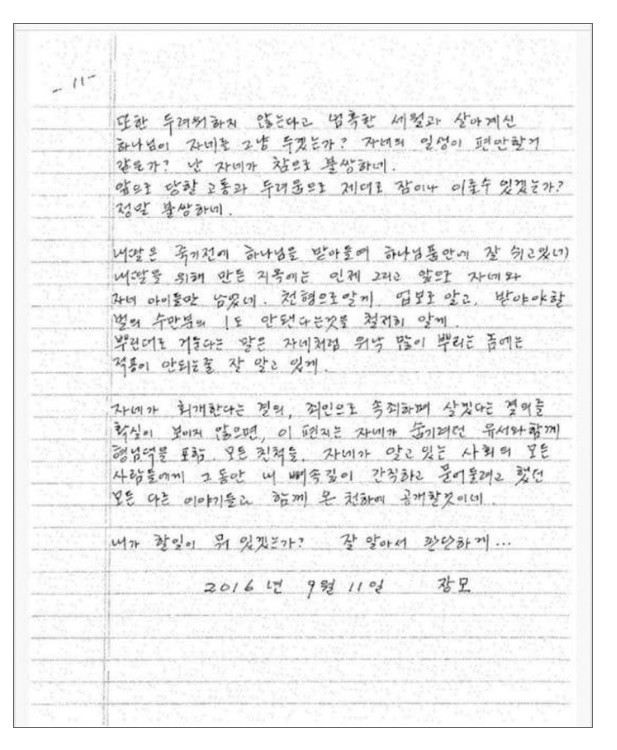 - 11 -
또한 두려워하지 않는다고 넘족한 세월과 살아계신
하나님이 자네를 그냥 두겠는가? 자네의 일생이 편안할거
같은가? 난 자네가 참으로 불쌍하네.
앞으로 당할 고통과 두려움으로 제대로 잠이나 이룰수 있겠는가?
정말 불쌍하네.
내딸은 죽기전에 하나님을 받아들여 하나님품안에 잘 쉬고있네
내딸을 위해 만든 지옥에는 인제 그리고 앞으로 자네와
자녀 아이들만 남았네. 천형으로알게. 업보로 알고, 받아야할
벌의 수만분의 1도 안된다는것을 철저히 알게.
뿌린대로 거둔다는 말은 자네처럼 워낙 많이 뿌리는 놈에는
적용이 안되는줄 잘 알고 있게.
자네가 회개한다는 결의, 죄인으로 속죄하며 살겠다는 결의를
확실히 보이지 않으면, 이 편지는 자네가 숨기려던 유서와함께
형님댁을 포함, 모든 친척들, 자네가 알고 있는 사회의 모든
사람들에게 그동안 내 뼈속깊이 간직하고 묻어둘려고 했던
모든 다른 이야기들과 함께 온 천하에 공개할것이네.
내가 할일이 뭐 있겠는가? 잘 알아서 판단하게...
2016 년 9월 11일 장모